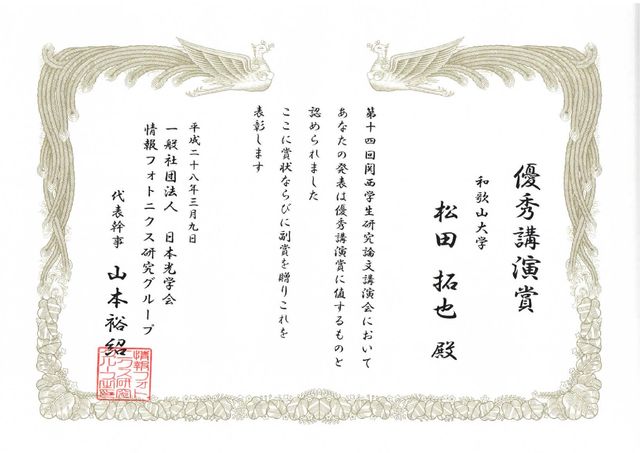 優秀講演賞
和歌山大学
松田 拓也 殿
第十四回関西学生研究論文講演会において
あなたの発表は優秀講演賞に値するものと
認められました
ここに賞状ならびに副賞を贈りこれを
表彰します
平成二十八年三月九日
一般社団法人 日本光学会
情報フォトニクス研究グループ
代表幹事 山本裕紹
情報フォト
ニクス研究
グループ